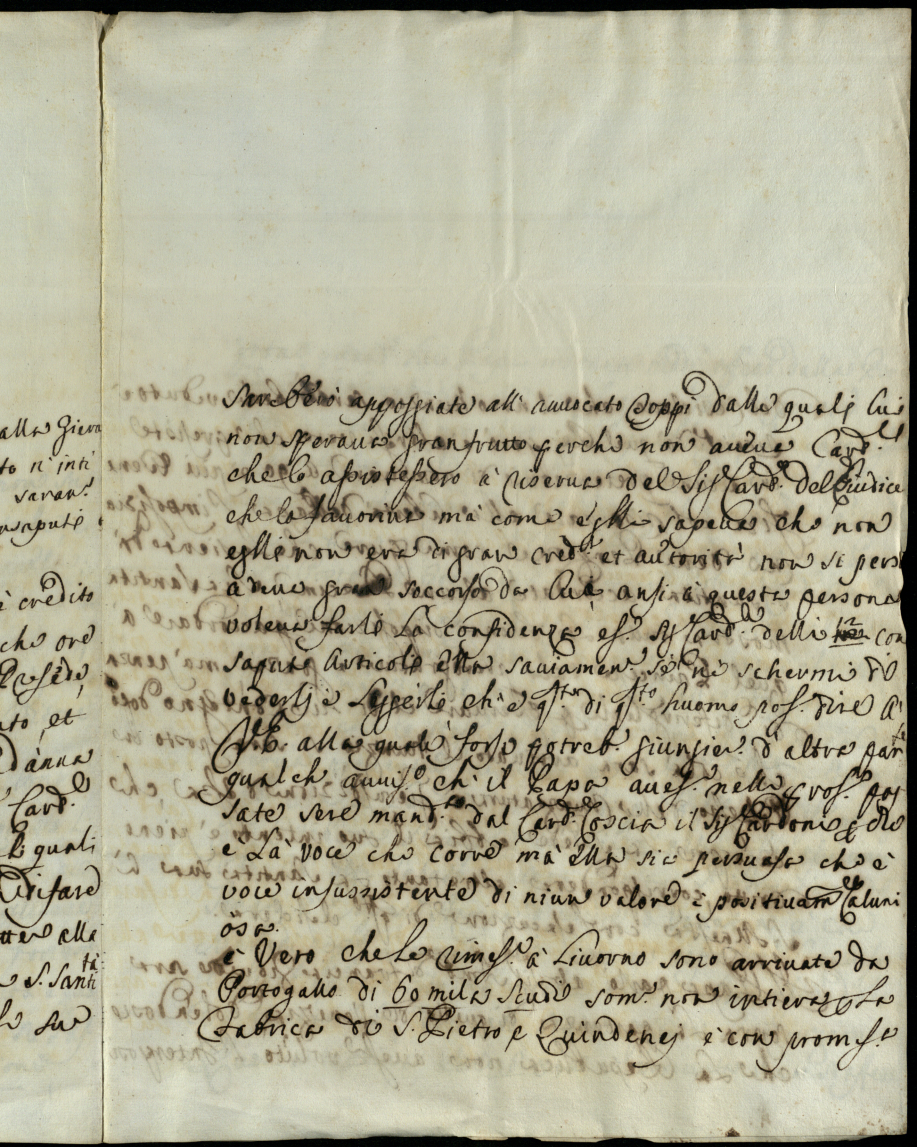 alla Giera
to n'inti
saran.
n aputi
è credito
che ore
Presede
ato, et
d'anna
Card.le
Le quali
Disfare
tter alla
e S. Santi.tà
le sue
sarebero appoggiate all' auuocato Coppi dalle qualj lui
non speraua gran frutto perche non aueua Card.li
che lo a riserua del Sig. Card. del Giudice
che lo fauoriua mà come eglli sapeua che non
eglli non era di gran cred.o et autorità non si pers
aueua gran soccorso da lui ansi à questa persona
voleua farli La confidenza es. Sig. Card.le delli con
sapute Articole ella sauiamen.e se ne schermì di
vederlj e Leggerli ch' è q.to di q.to huomo pos. dire A
V.E. alla quale forse potreb. giungier. d'altra par.te
qualch auuis.o ch' il Papa aues. nelle pros. pas
sate sere mand.to dal Card. Coscia il Sig. Cardone
è La voce che corre mà ella sia persuasa che è
voce insussistente di niun valore e positiuam.te Caluni
osa.
è Vero che Le rimes.e à Liuorno sono arriuate da
Portogallo di 60 mila scudi som.a non intiera La
Fabrica di S. Pietro e Quindenej e con promes.a